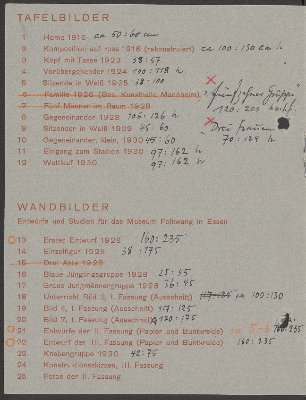 TAFELBILDER
1 Homa 1916 ca 50:60 cm
2 Komposition auf rosa 1916 (rekonstruiert) ca 100:130 ca h
3 Kopf mit Tasse 1923 38:57
4 Vorübergehender 1924 100:118 h
5 Sitzende in Weiß 1925 38:100
6 Familie 1926 (Bes. Kunsthalle Mannheim)
7 Fünf Männer im Raum 1928 120:200 hoch
8 Gegeneinander 1928 106:126 h
9 Sitzender in Weiß 1929 45:60 "Drei Frauen"
10 Gegeneinander, klein, 1930 45:60 70:124 h
11 Eingang zum Stadion 1930 97:162 h
12 Wettlauf 1930 97:162 h
WANDBILDER
Entwürfe und Studien für das Museum Folkwang in Essen
13 Erster Entwurf 1928 160:235
14 Einzelfigur 1928 38:175
15 Drei Akte 1928
16 Blaue Jünglingsgruppe 1928 25:55
17 Graue Jungmännergruppe 1928 36:45
18 Unterricht Bild 3, I. Fassung (Ausschnitt) ca 100:130
19 Bild 4, I. Fassung (Ausschnitt) 117:125
20 Bild 7, I. Fassung (Ausschnitt) 120:175
21 Entwürfe der II. Fassung (Papier und Buntkreide) ca 5-6 160:235
22 Entwurf der III. Fassung (Papier und Buntkreide) 160:235
23 Knabengruppe 1930 42:75
24 Konstruktionsskizzen, III. Fassung
25 Fotos der II. Fassung